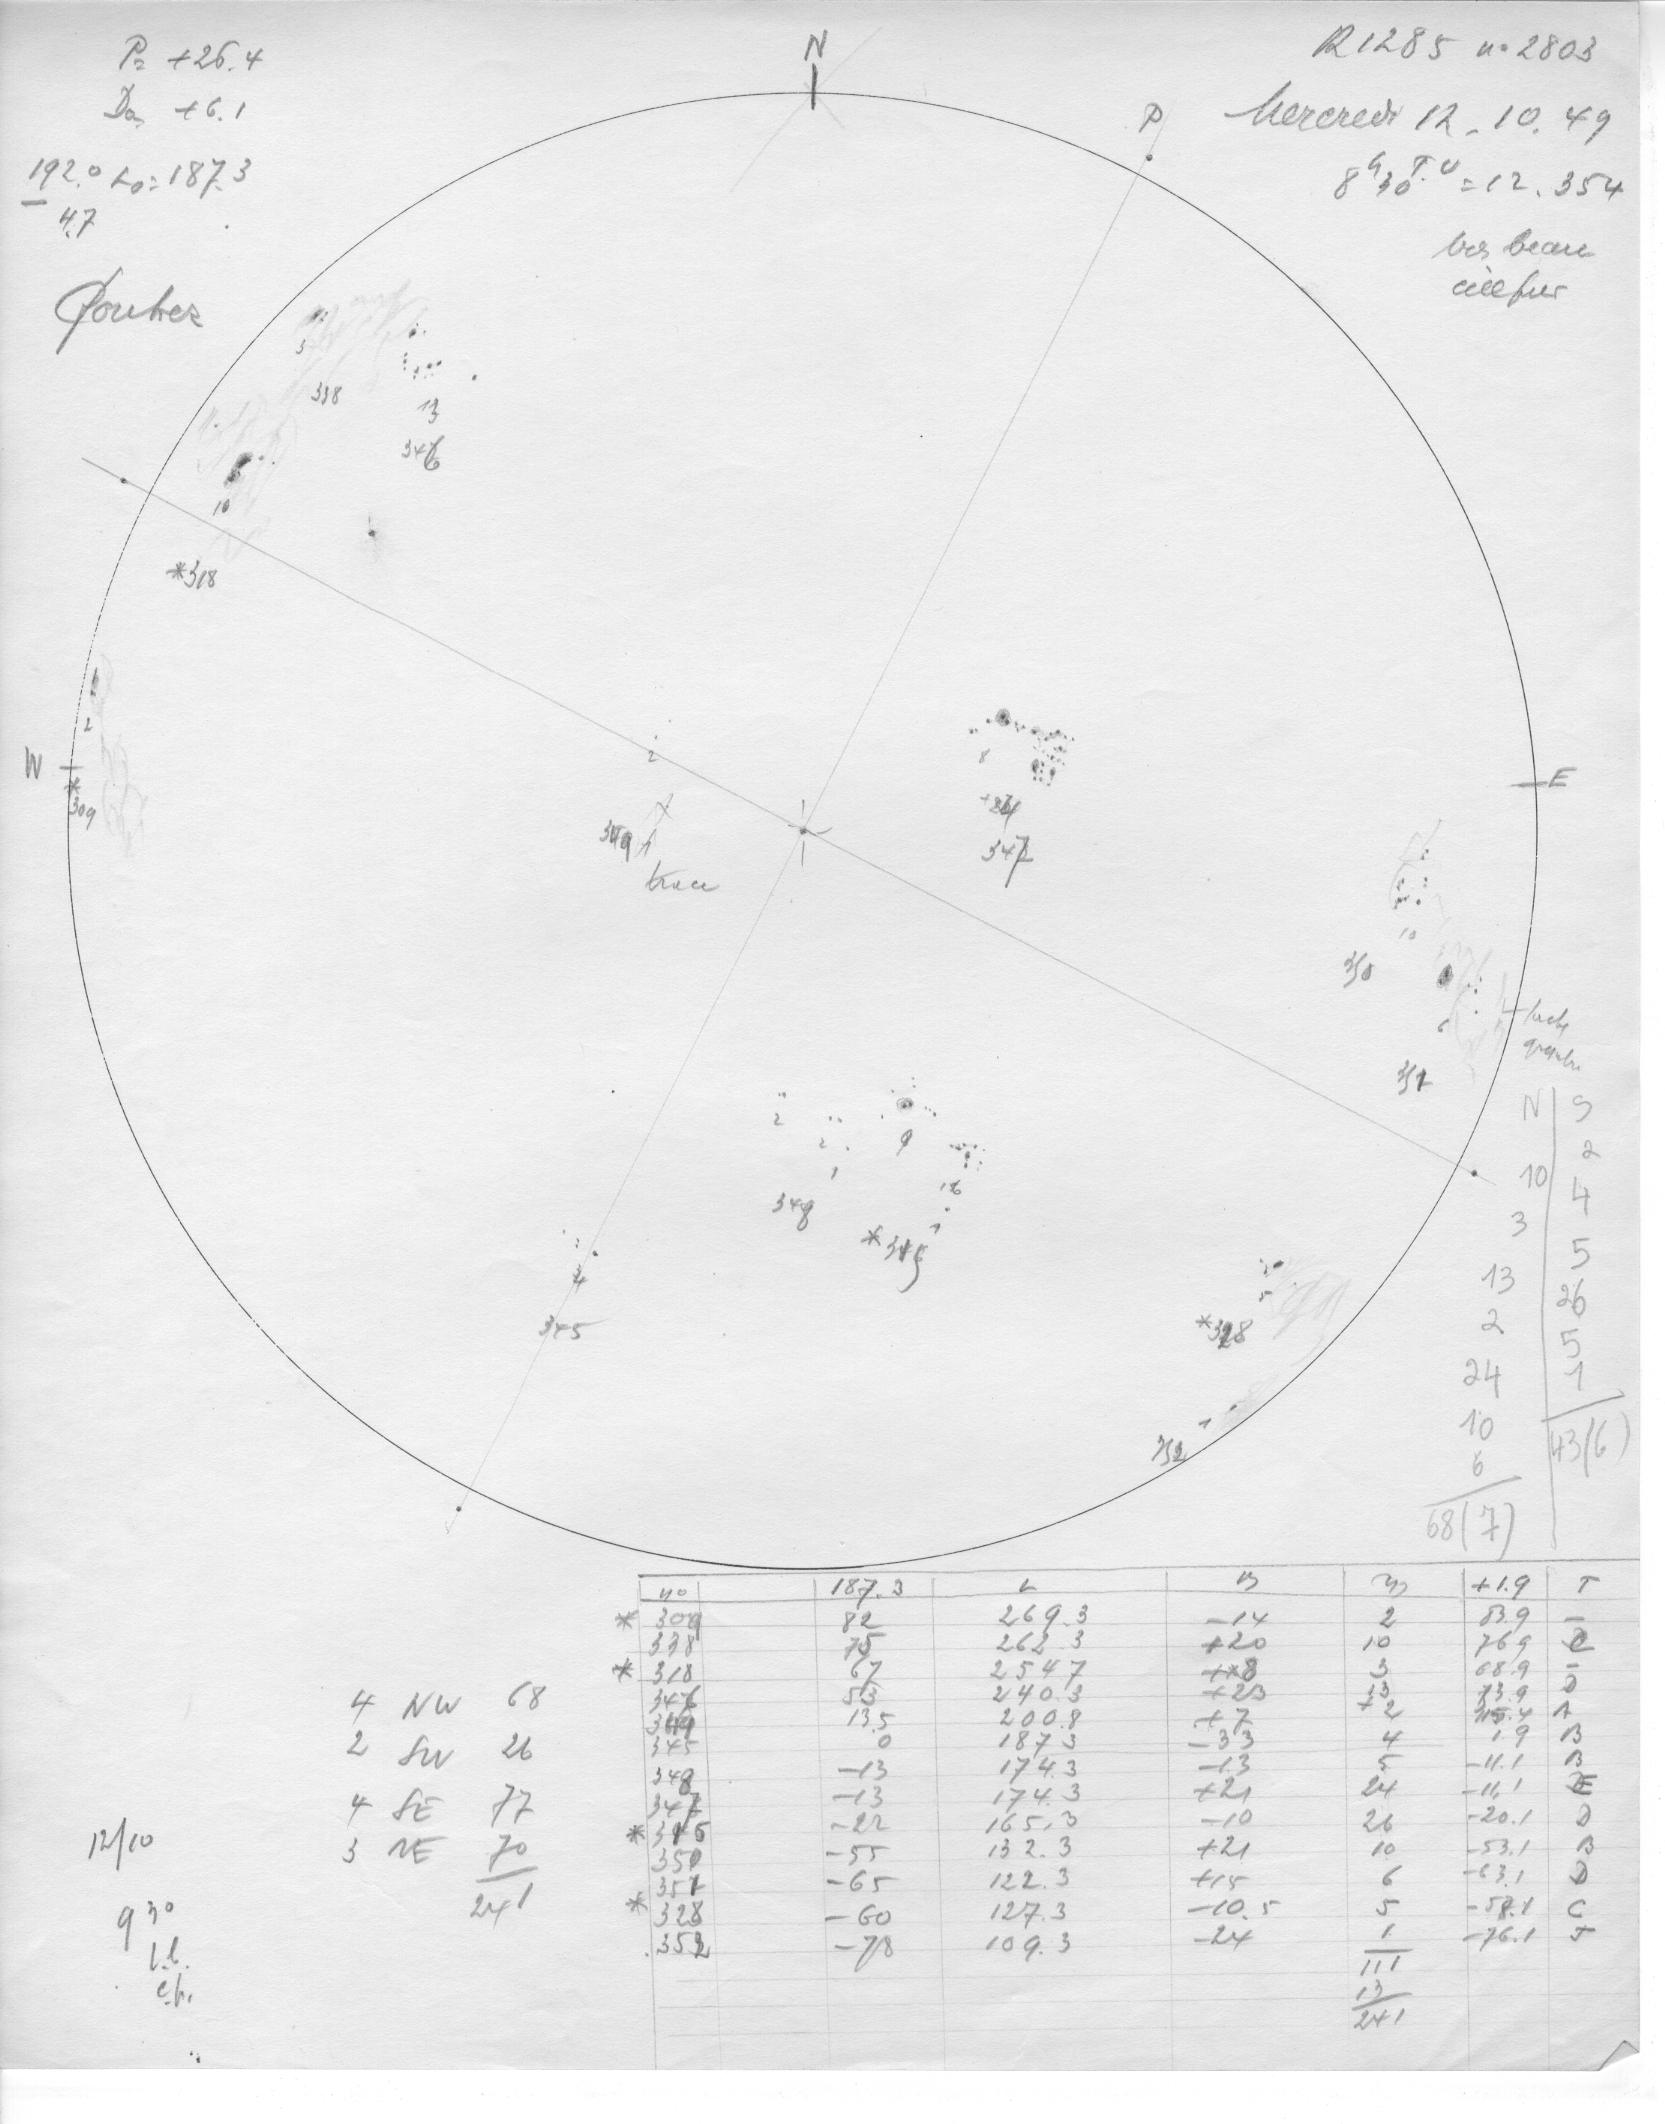 P= +26.4
D= +6.1
192.0 Lo= 187.3
4.7
N
P
R1285 n° 2803
Mercredi 12.10.49
8h30 T.U = 12.354
très beau
3
338
13
346
10
*318
2
W
*
309
2
349
trace
8
347
E
10
350
6
351
tache
2
2
1
348
9
16
1
*315
4
345
5
*328
1
352
N | S
2
10
4
3
5
13
26
2
5
24
1
10
43(6)
6
68(7)
n° 187.3 L B +1.9 T
* 309 82 269.3 -14 2 83.9 -
338 75 262.3 +20 10 76.9
* 318 67 254.7 +8 3 68.9 -
346 53 240.3 +23 13 D
349 13.5 200.8 +7 2 15.4 A
345 0 187.3 -33 4 1.9 B
348 -13 174.3 -13 5 -11.1 B
347 -13 174.3 +21 24 -11.1 E
* 315 -22 165.3 -10 26 -20.1 D
350 -55 132.3 +21 10 -53.1 B
351 -65 122.3 +15 6 -63.1 D
* 328 -60 127.3 -10.5 5 -58.1 C
352 -78 109.3 -24 1 -76.1 J
111
13
241
4 NW 68
2 SW 26
4 SE 77
3 NE 70
241
12/10
9 30